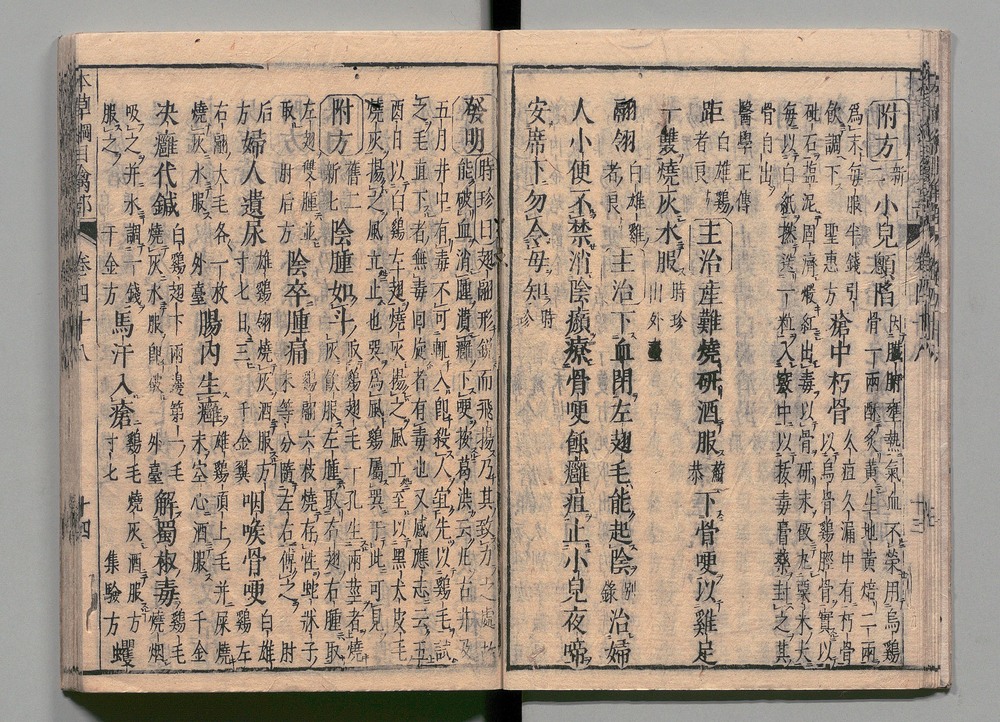 附方 新二 小兒顖陷 因臟腑壅熱氣血不榮用烏雞骨一兩酥炙黃生地黃焙二兩
爲末每服半錢粥飲調下 聖惠方 瘡中朽骨 久疽久漏中有朽骨以烏骨雞脛骨實以
砒石鹽泥固濟煅紅出毒以骨研末飯丸粟米大每以白紙撚送一粒入竅中以拔毒膏藥封之其
骨自出醫學正傳
距 白雄雞者良 主治 產難燒研酒服 蘇恭 下骨哽以雞足
一雙燒灰水服 時珍 出外臺
翮翎 白雄雞者良 主治 下血閉左翅毛能起陰 別錄 治婦
人小便不禁消陰㿗療骨哽蝕癰疽止小兒夜啼
安席下勿令母知 時珍
發明 時珍曰翅翮形銳而飛揚乃其致力之處故能破血消腫潰癰下哽按葛洪云凡古井及
五月井中有毒不可輒入即殺人宜先以雞毛試之毛直下者無毒回旋者有毒也又感應志云五
酉日以白雞左翅燒灰揚之風立至以黑犬皮毛燒灰揚之風立止也巽爲風雞屬巽于此可見
附方 舊二新七 陰腫如斗 取雞翅毛一孔生兩莖者燒灰飲服左腫取右翅右腫取
左翅雙腫並取肘后方 陰卒腫痛 雞翮六枝燒存性蛇牀子末等分隨左右傅之 肘
后方 婦人遺尿 雄雞翎燒灰酒服方寸七日三 千金翼 咽喉骨哽 白雄雞左
右翮大毛各一枚燒灰水服 外臺 腸內生癰 雄雞頂上毛并屎燒末空心酒服 千金
決癰代鍼 白雞翅下兩邊第一毛燒灰水服即破 外臺 解蜀椒毒 雞毛燒烟
吸之并水調一錢服之 千金方 馬汗入瘡 雞毛燒灰酒服方寸七 集驗方 蠼
本草綱目禽部 卷四十八 十四